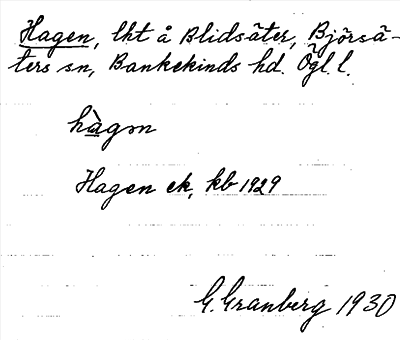 Hagen, lht å Blidsäter, Björsä-
ters sn, Bankekinds hd. Ögl. l.
hàgən
Hagen ek, kb 1929
G. Granberg 1930